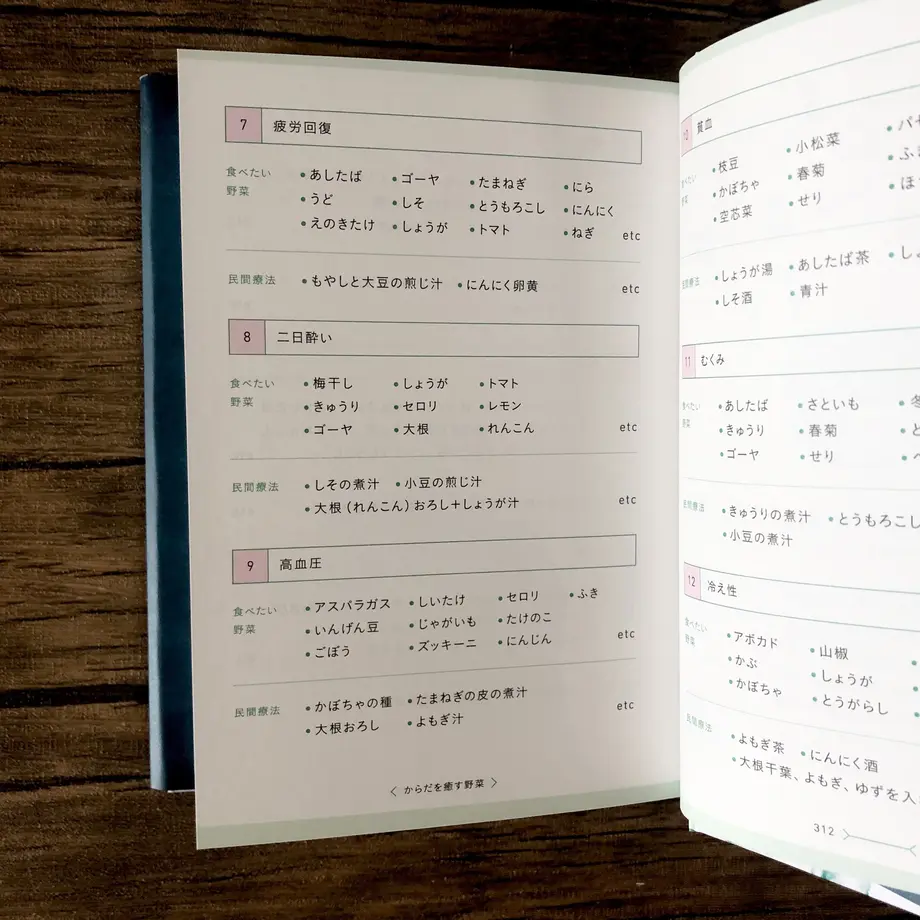 7 疲労回復
食べたい野菜
・あしたば ・ゴーヤ ・たまねぎ ・にら
・うど ・しそ ・とうもろこし ・にんにく
・えのきたけ ・しょうが ・トマト ・ねぎ etc
民間療法 ・もやしと大豆の煎じ汁 ・にんにく卵黄 etc
8 二日酔い
食べたい野菜
・梅干し ・しょうが ・トマト
・きゅうり ・セロリ ・レモン
・ゴーヤ ・大根 ・れんこん etc
民間療法 ・しその煮汁 ・小豆の煎じ汁
・大根(れんこん)おろし+しょうが汁 etc
9 高血圧
食べたい野菜
・アスパラガス ・しいたけ ・セロリ ・ふき
・いんげん豆 ・じゃがいも ・たけのこ
・ごぼう ・ズッキーニ ・にんじん etc
民間療法 ・かぼちゃの種 ・たまねぎの皮の煮汁
・大根おろし ・よもぎ汁 etc
〈 からだを癒す野菜 〉
10 貧血
食べたい野菜
・枝豆 ・小松菜
・かぼちゃ ・春菊
・空芯菜 ・せり
民間療法 ・しょうが湯 ・あしたば茶
・しそ酒 ・青汁
11 むくみ
食べたい野菜
・あしたば ・さといも
・きゅうり ・春菊
・ゴーヤ ・せり
民間療法 ・きゅうりの煮汁 ・とうもろこし
・小豆の煮汁
12 冷え性
食べたい野菜
・アボカド ・山椒
・かぶ ・しょうが
・かぼちゃ ・とうがらし
民間療法 ・よもぎ茶 ・にんにく酒
・大根干葉、よもぎ、ゆずを入
312